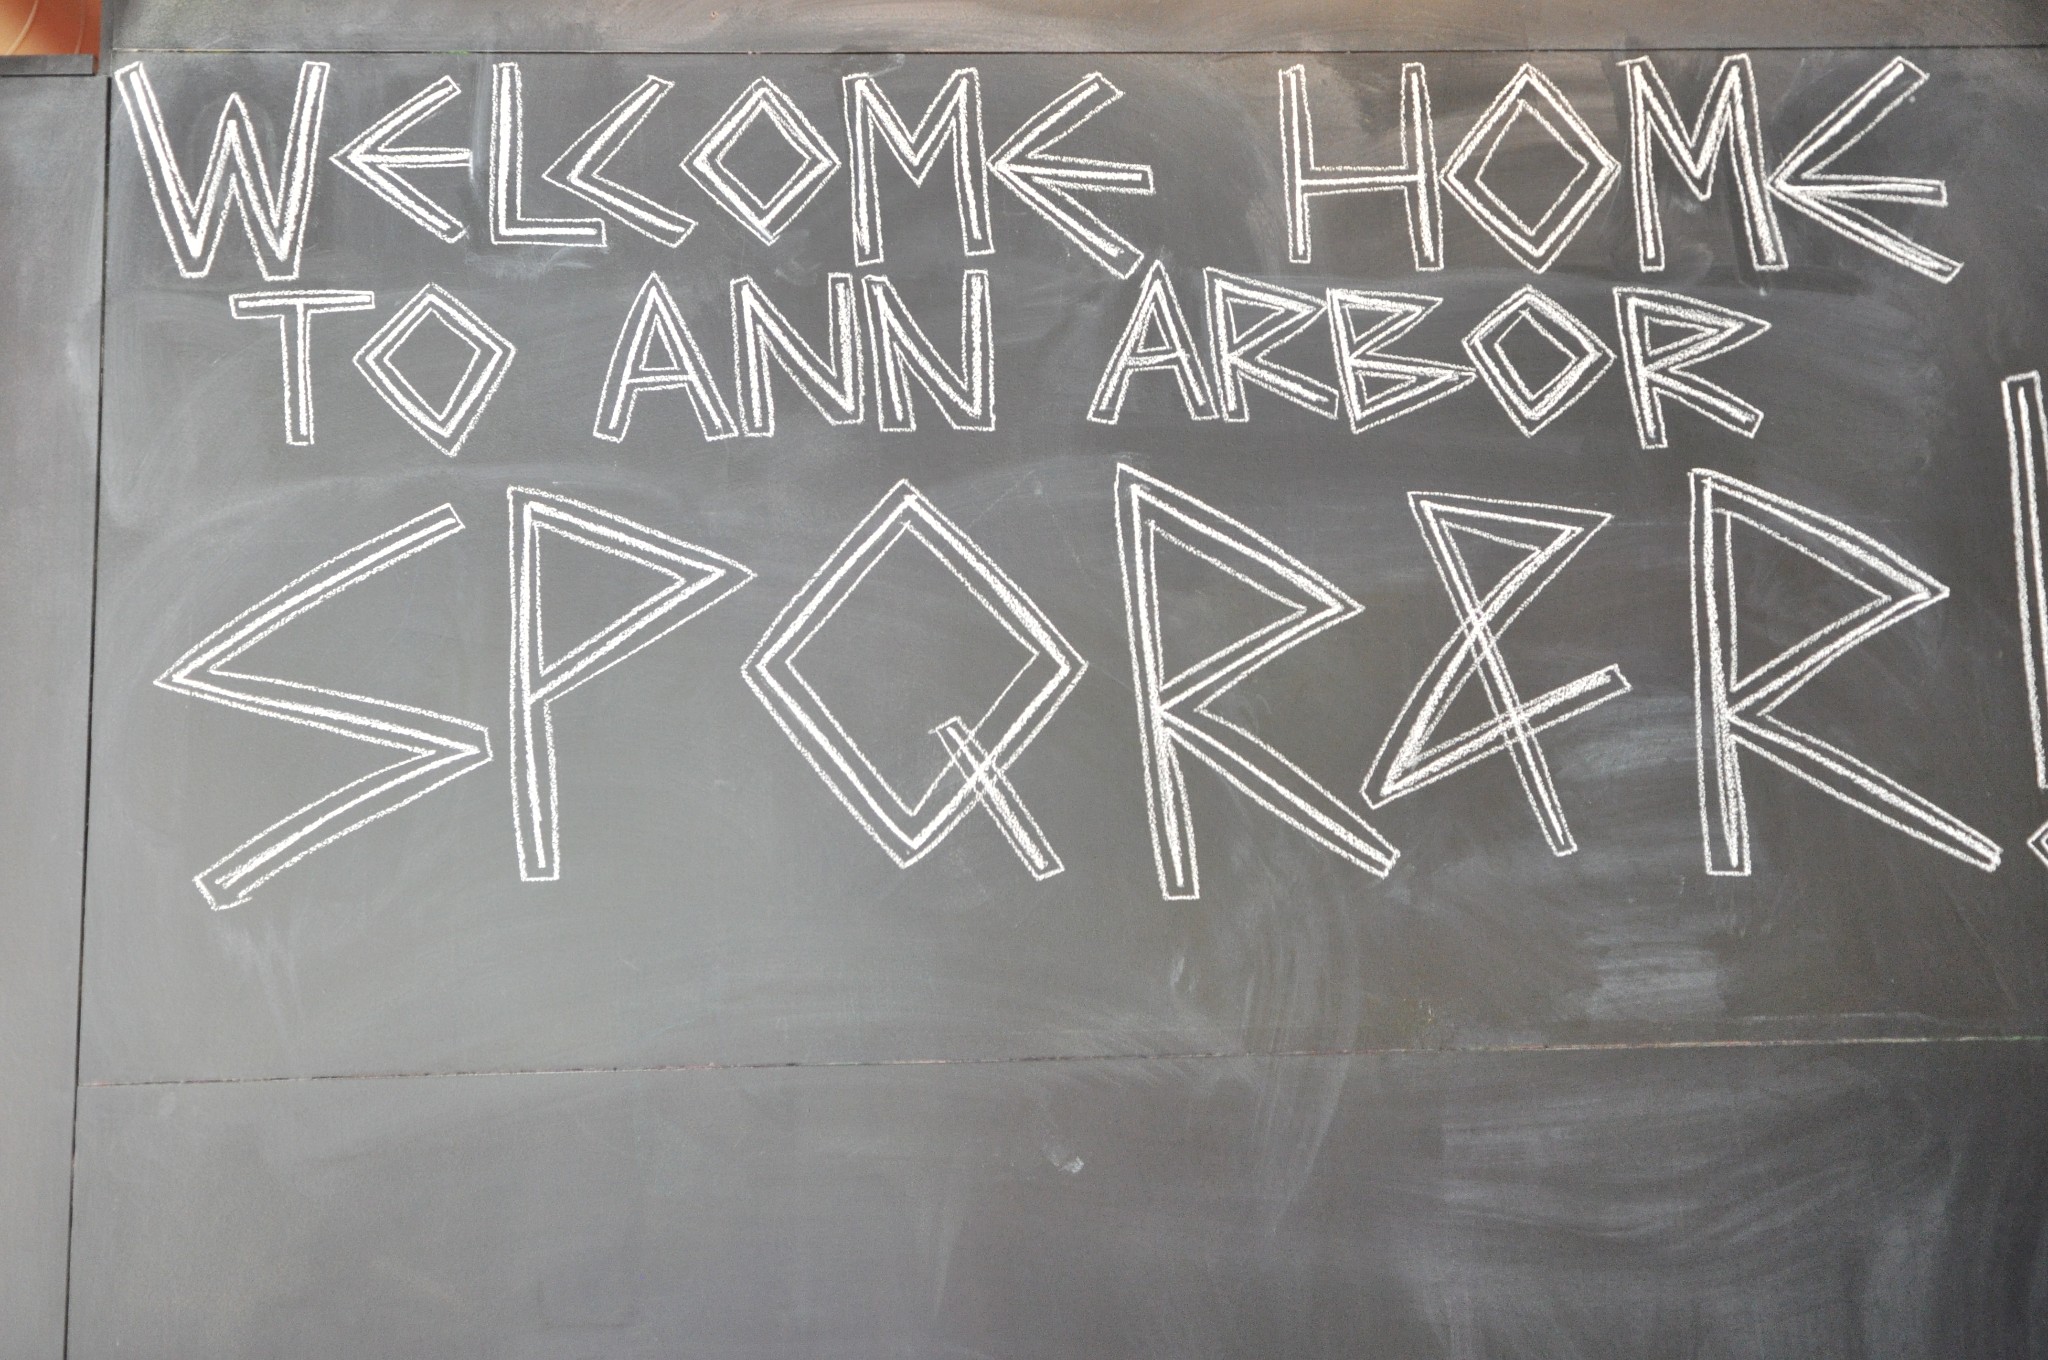 WELCOME HOME
TO ANN ARBOR
SPQR&R!